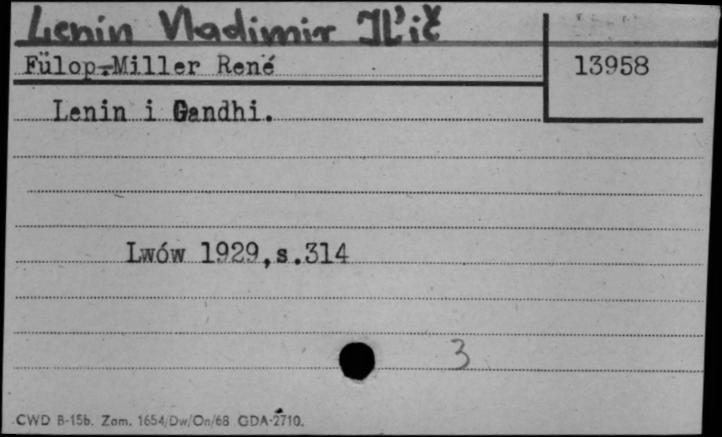 Lenin Vladimir Il'ič
Fülop-Miller René
13958
Lenin i Gandhi.
Lwów 1929,s.314
3
CWD B-15b. Zam. 1654/Dw/On/68 GDA-2710.